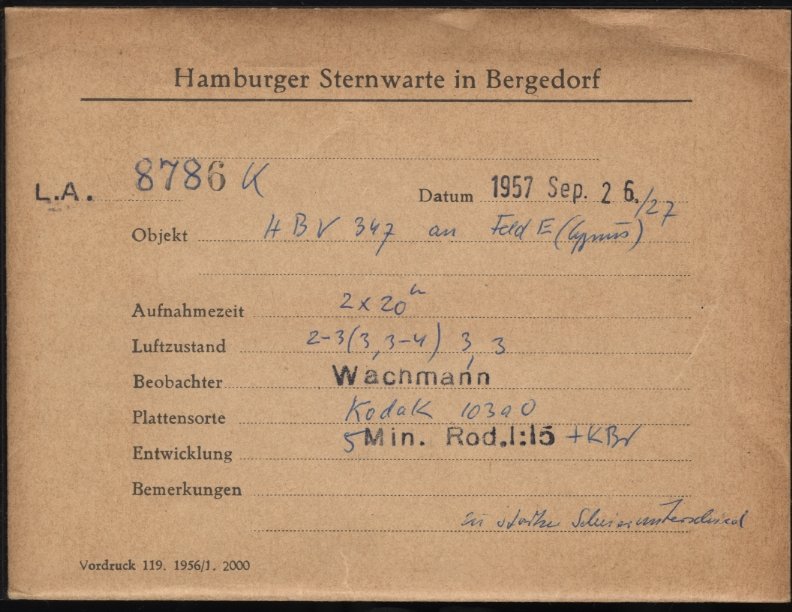 Hamburger Sternwarte in Bergedorf
L.A. 8786 K
Datum 1957 Sep. 26./27
Objekt HBV 347 an Feld E (Cygnus)
Aufnahmezeit 2 x 20ᵐ
Luftzustand 2-3(3, 3-4) 3, 3
Beobachter Wachmann
Plattensorte Kodak 103a0
Entwicklung 5 Min. Rod.1:15 + KBr
Bemerkungen
zu starker
Vordruck 119. 1956/1. 2000